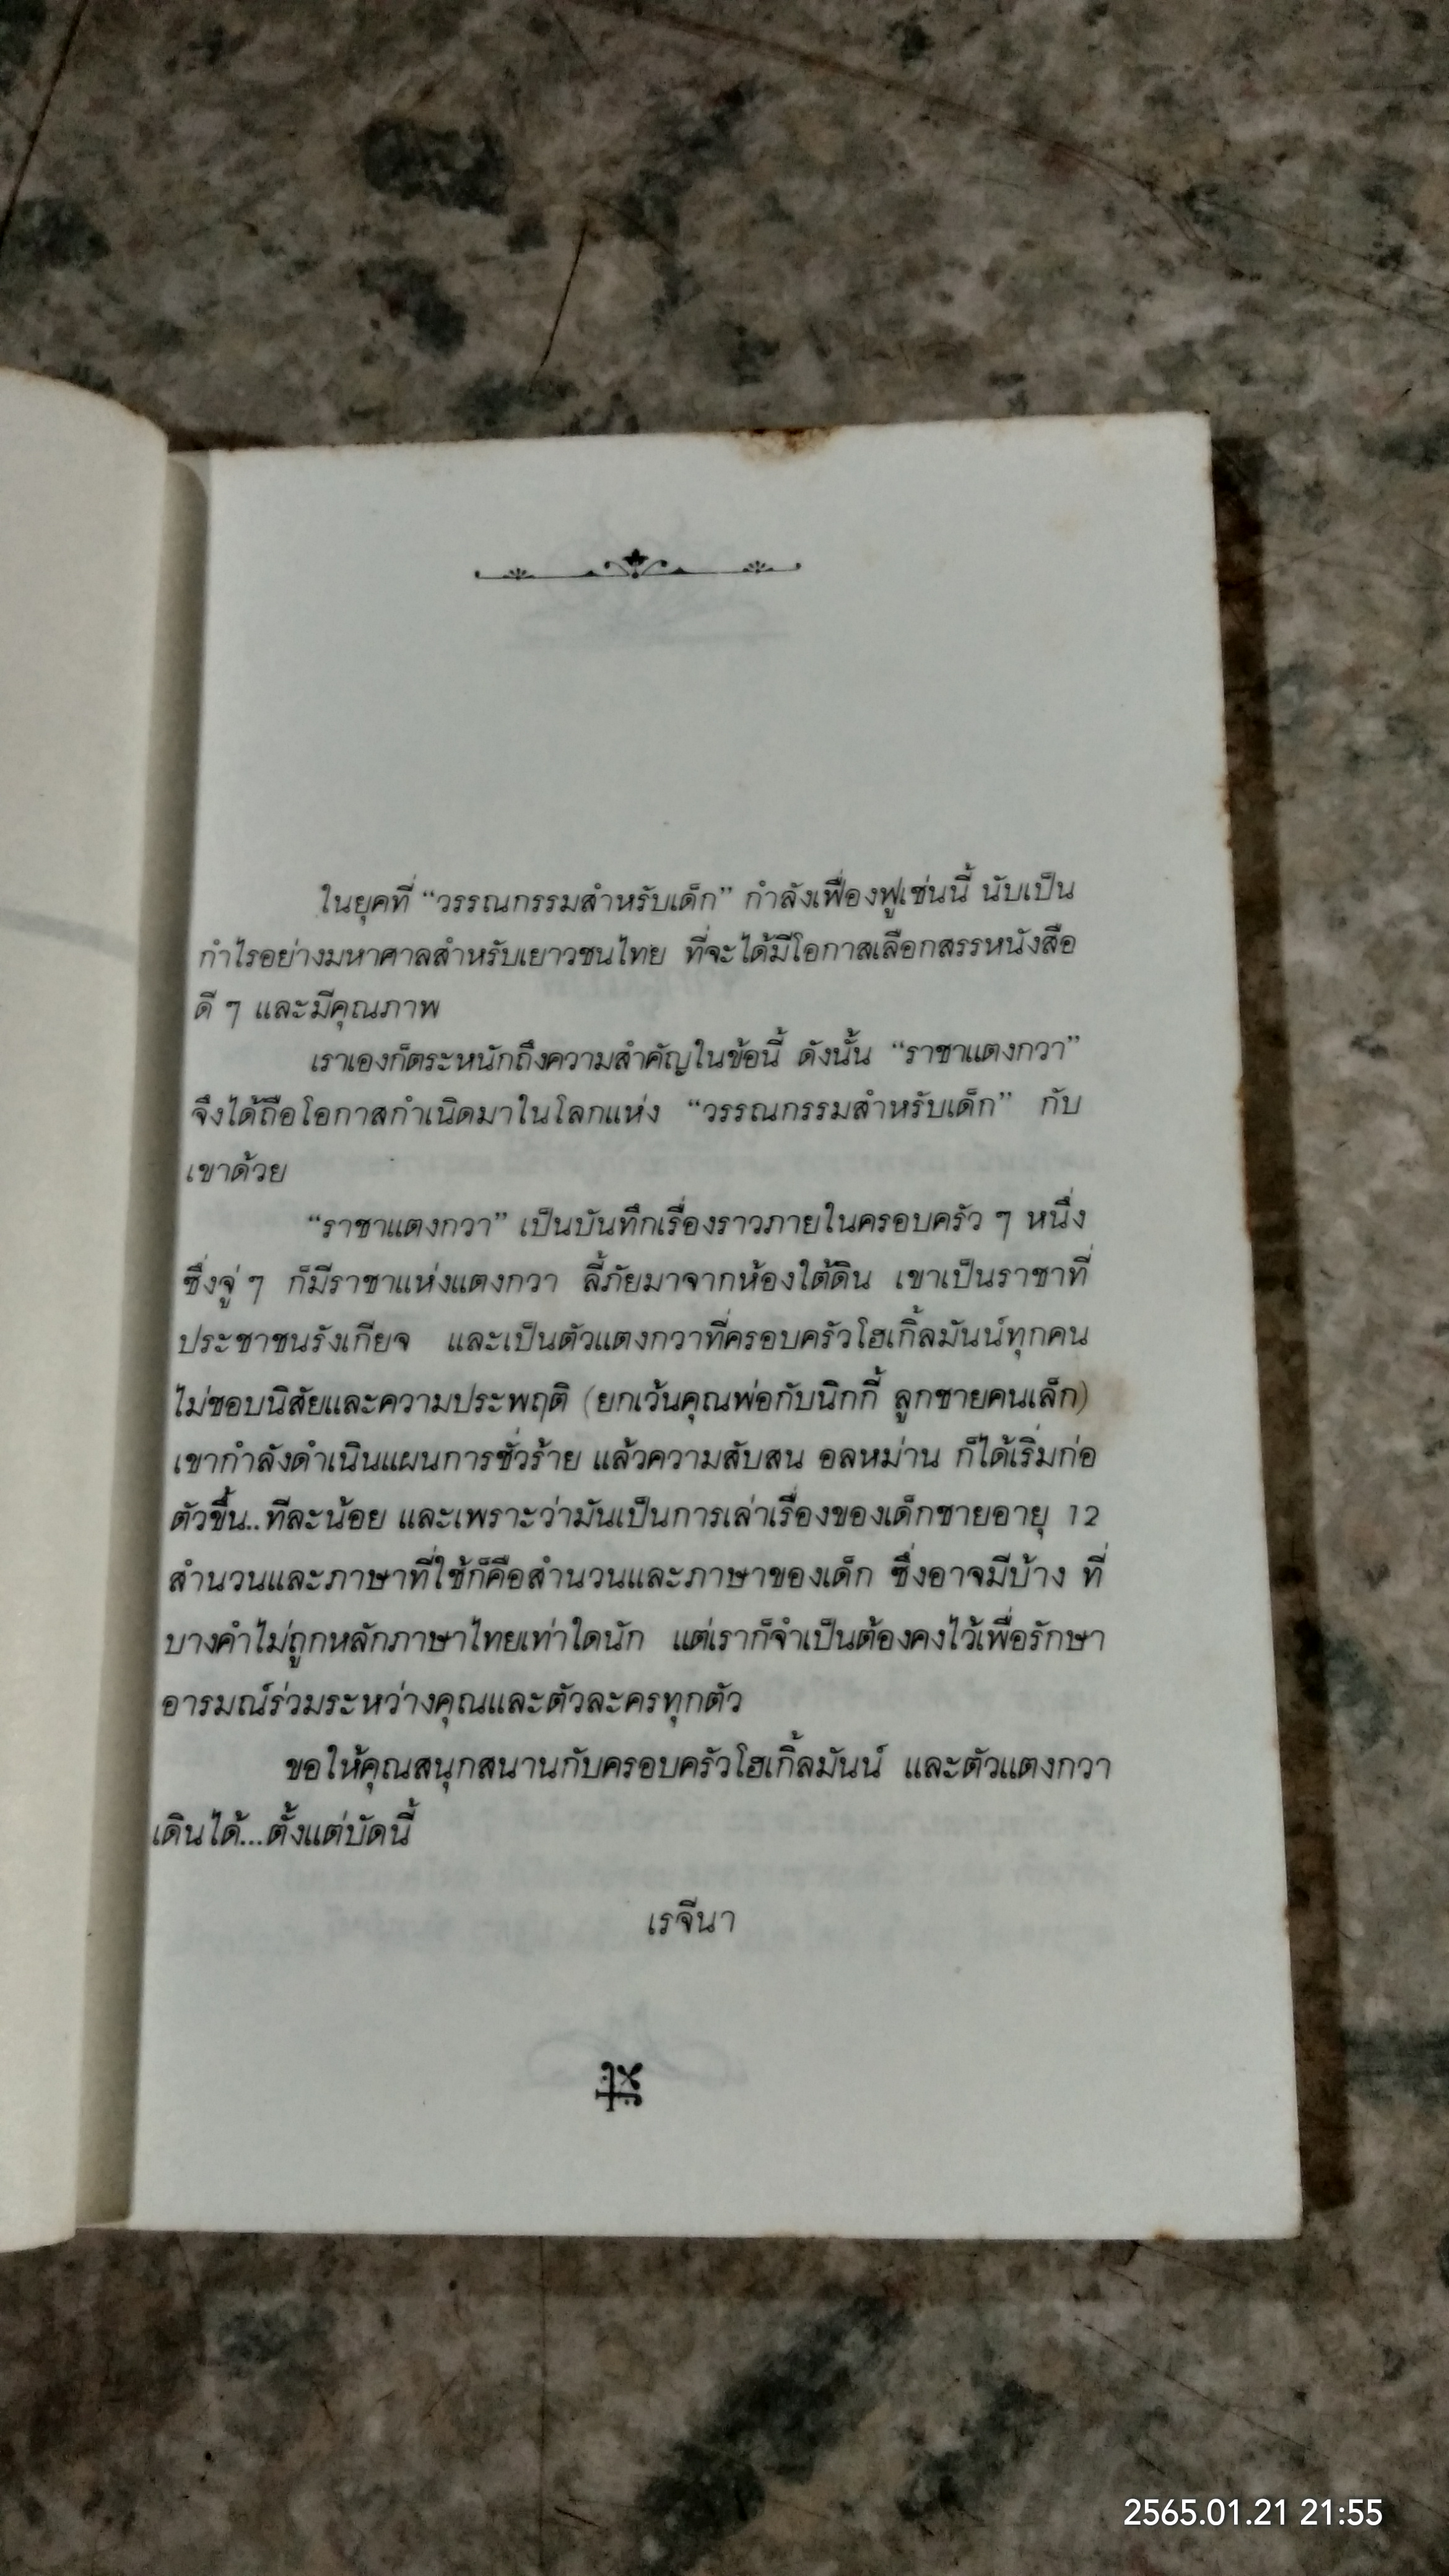 ในยุคที่ “วรรณกรรมสำหรับเด็ก” กำลังเฟื่องฟูเช่นนี้ นับเป็น
กำไรอย่างมหาศาลสำหรับเยาวชนไทย ที่จะได้มีโอกาสเลือกสรรหนังสือ
ดี ๆ และมีคุณภาพ
เราเองก็ตระหนักถึงความสำคัญในข้อนี้ ดังนั้น “ราชาแตงกวา”
จึงได้ถือโอกาสกำเนิดมาในโลกแห่ง “วรรณกรรมสำหรับเด็ก” กับ
เขาด้วย
“ราชาแตงกวา” เป็นบันทึกเรื่องราวภายในครอบครัว ๆ หนึ่ง
ซึ่งจู่ ๆ ก็มีราชาแห่งแตงกวา ลี้ภัยมาจากห้องใต้ดิน เขาเป็นราชาที่
ประชาชนรังเกียจ และเป็นตัวแตงกวาที่ครอบครัวโฮเกิ้ลมันน์ทุกคน
ไม่ชอบนิสัยและความประพฤติ (ยกเว้นคุณพ่อกับนิกกี้ ลูกชายคนเล็ก)
เขากำลังดำเนินแผนการชั่วร้าย แล้วความสับสน อลหม่าน ก็ได้เริ่มก่อ
ตัวขึ้น..ทีละน้อย และเพราะว่ามันเป็นการเล่าเรื่องของเด็กชายอายุ 12
สำนวนและภาษาที่ใช้ก็คือสำนวนและภาษาของเด็ก ซึ่งอาจมีบ้าง ที่
บางคำไม่ถูกหลักภาษาไทยเท่าใดนัก แต่เราก็จำเป็นต้องคงไว้เพื่อรักษา
อารมณ์ร่วมระหว่างคุณและตัวละครทุกตัว
ขอให้คุณสนุกสนานกับครอบครัวโฮเกิ้ลมันน์ และตัวแตงกวา
เดินได้...ตั้งแต่บัดนี้
เรจีนา
2565.01.21 21:55